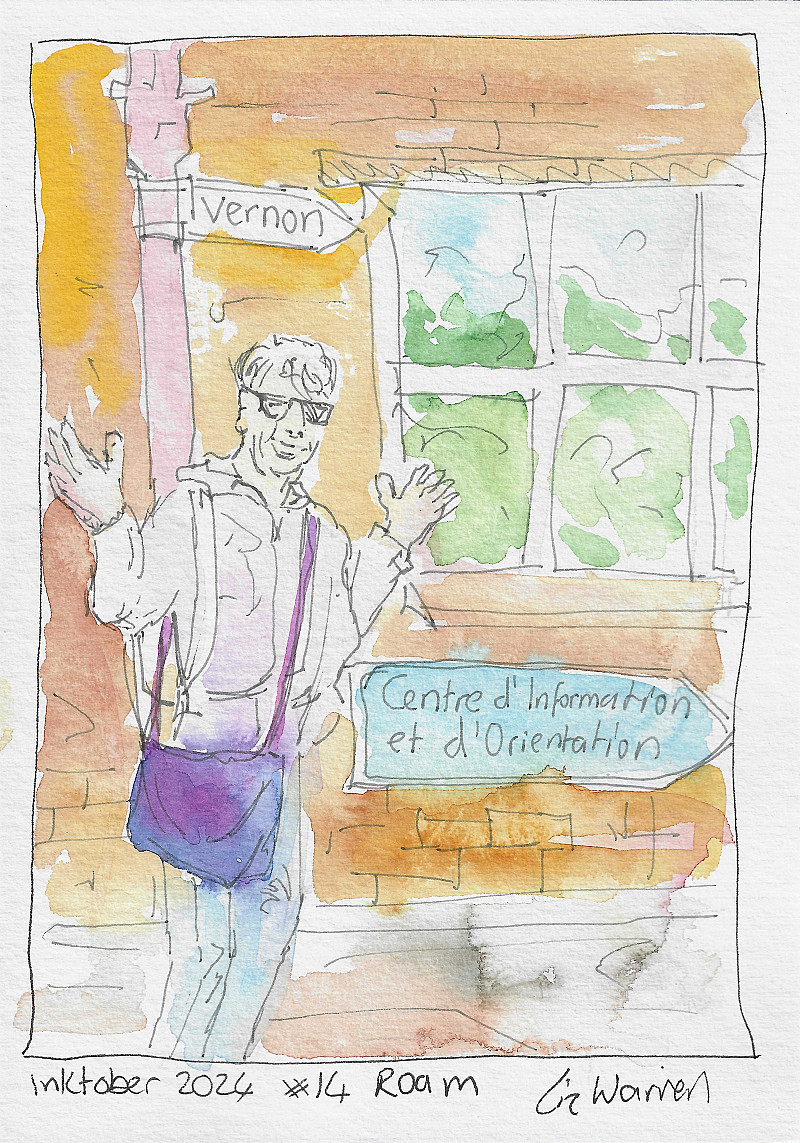 Vernon
Centre d'Information
et d'Orientation
inktober 2024 #14 Roam Liz Warren